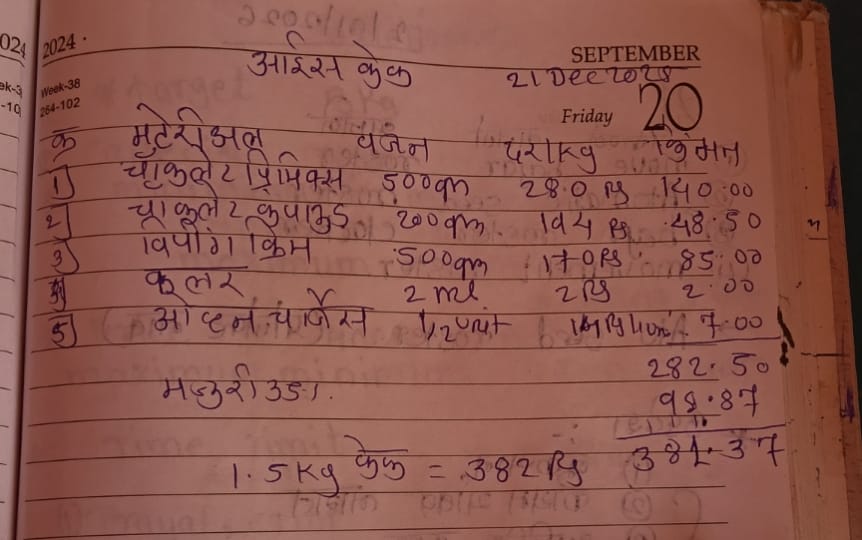 024 2024.
SEPTEMBER
आईस केक 21 Dec 2025
Week-38
264-102
Friday 20
क्र मटेरीअल वजन दर/kg किंमत
1) चॉकलेट प्रिमिक्स 500gm 280 ₨ 140.00
2) चॉकलेट कंपाऊंड 200gm. 194 ₨ 48.50
3) विपींग क्रिम 500gm 170 ₨ 85.00
4) कलर 2 ml 2 ₨ 2.00
5) ओव्हन चार्जेस 1/2 unit 14 ₨/uni. 7.00
282.50
मजुरी 35%. 98.87
381.37
1.5 kg केक = 382 ₨